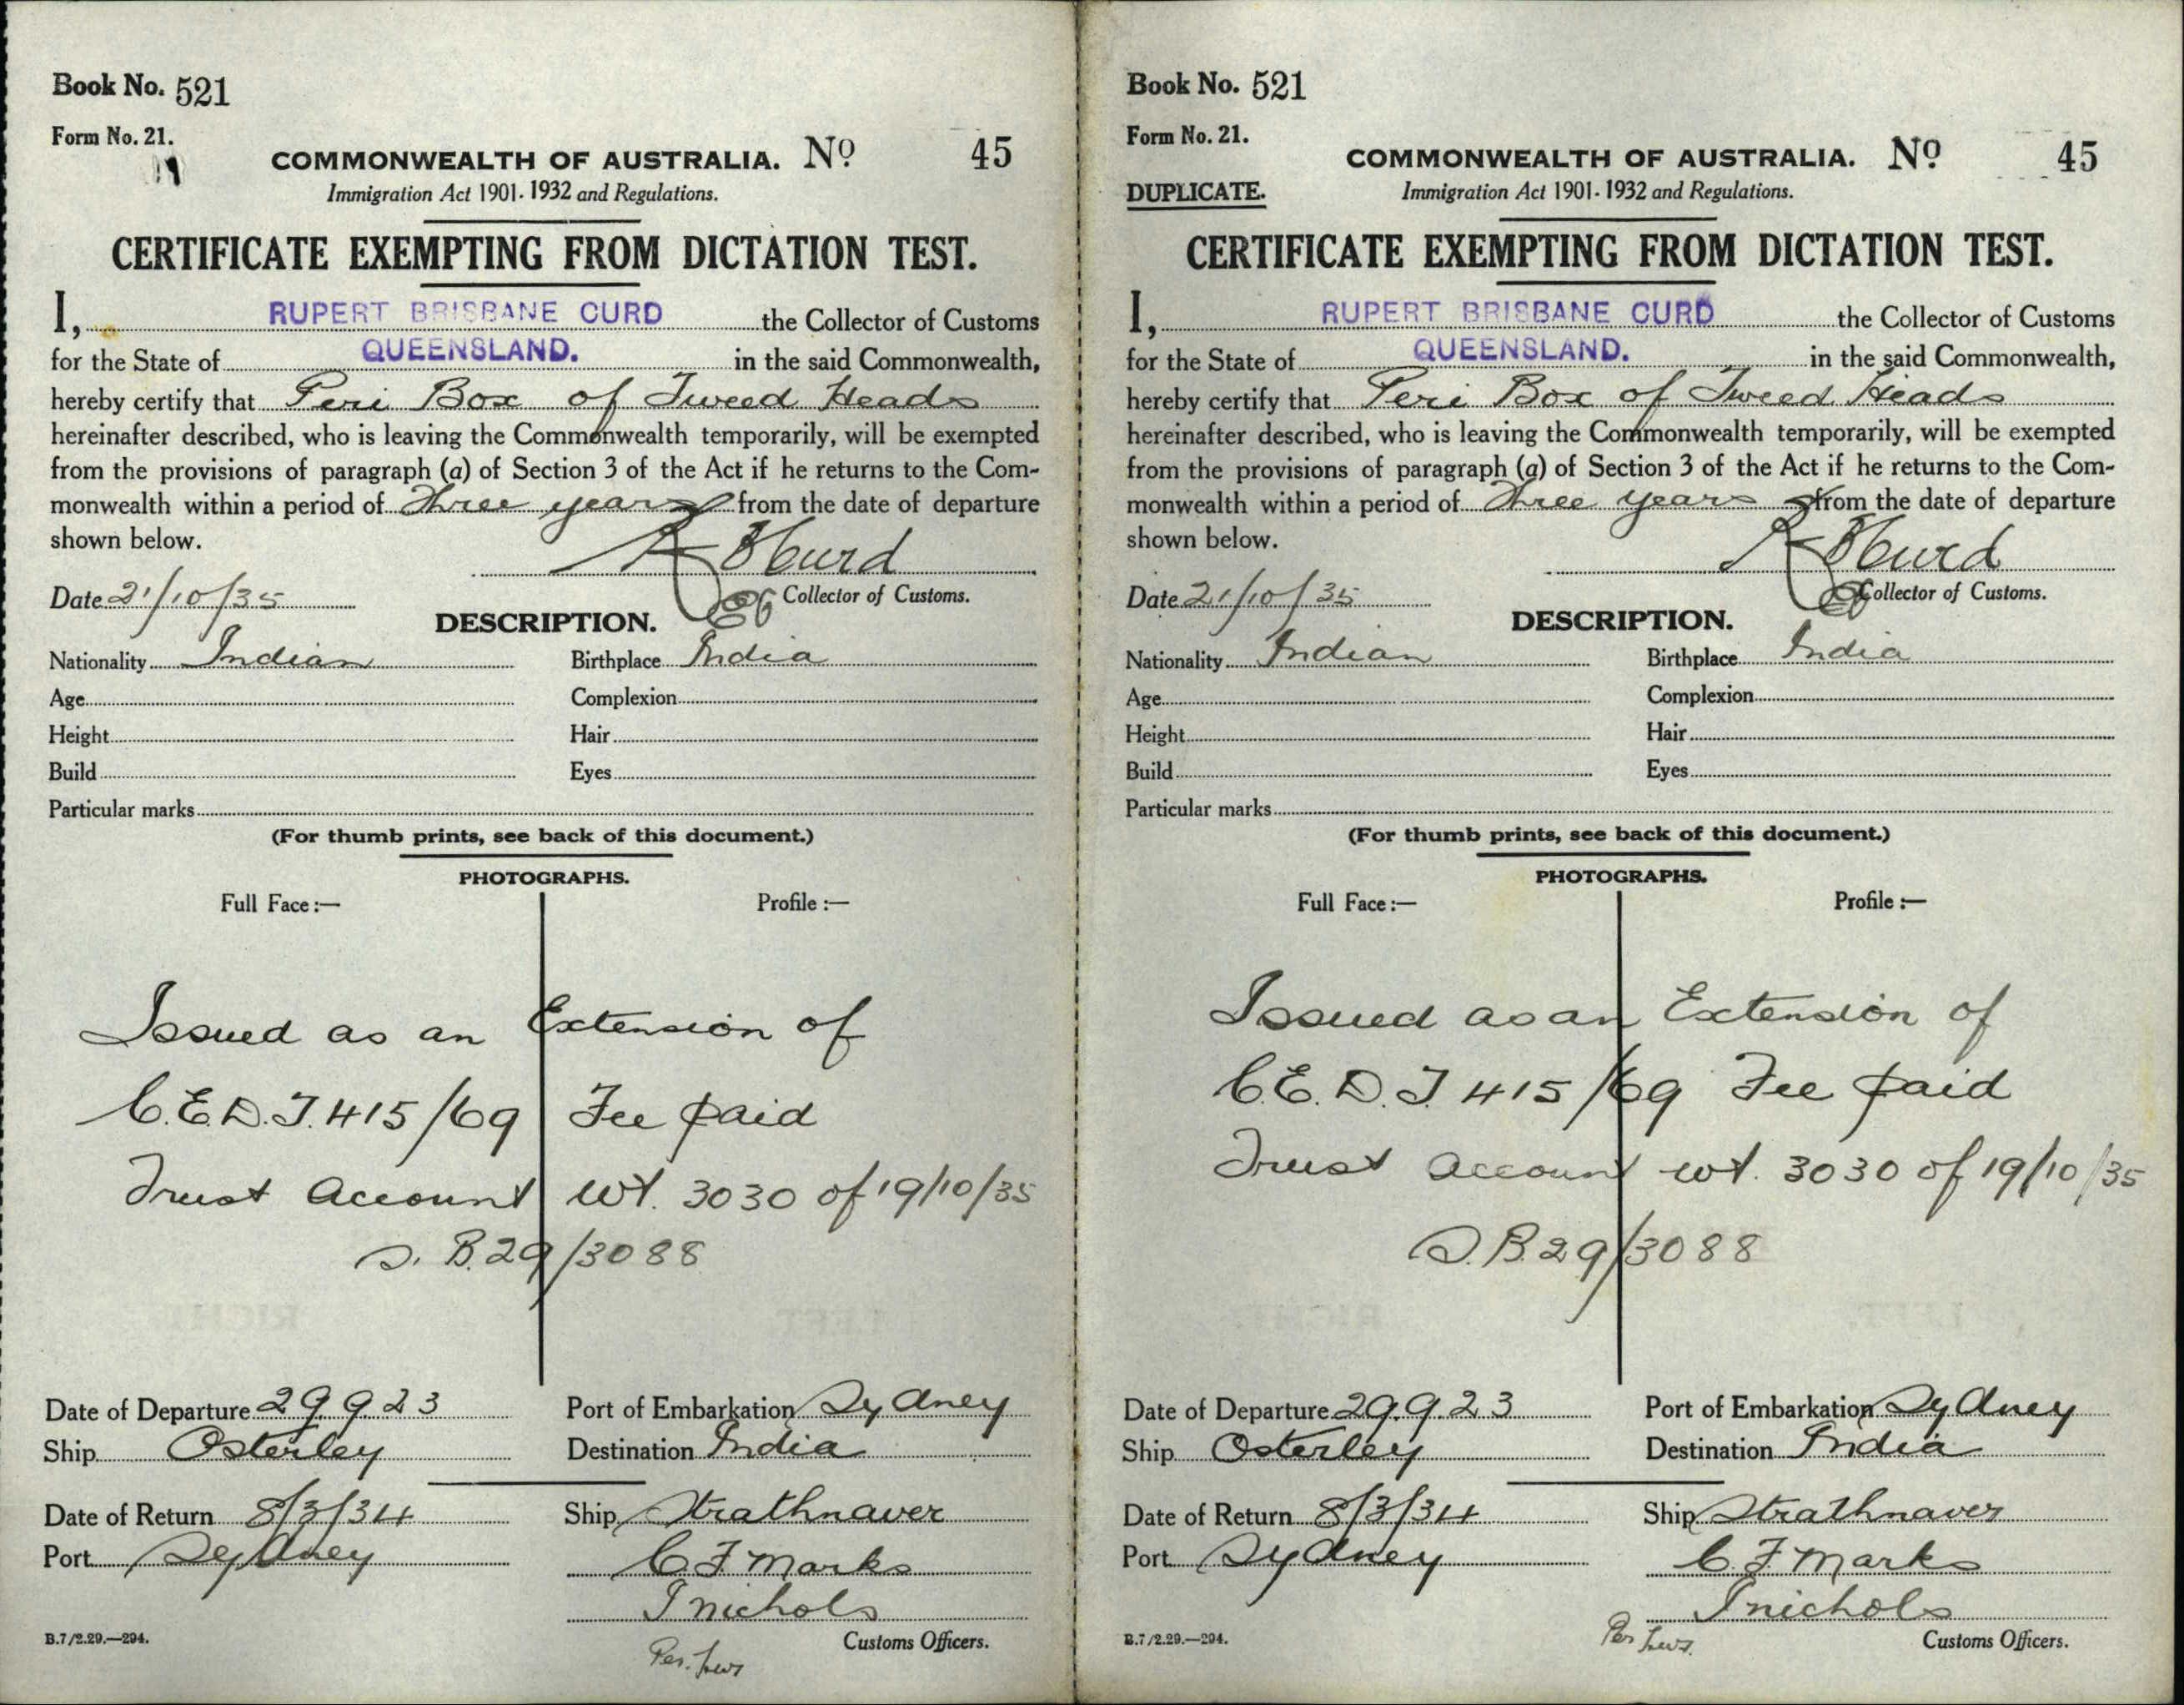 Book No. 521
Form No. 21.
COMMONWEALTH OF AUSTRALIA. No 45
Immigration Act 1901-1932 and Regulations.
CERTIFICATE EXEMPTING FROM DICTATION TEST.
I, RUPERT BRISBANE CURD the Collector of Customs
for the State of QUEENSLAND. in the said Commonwealth,
hereby certify that Peri Box of Tweed Heads
hereinafter described, who is leaving the Commonwealth temporarily, will be exempted
from the provisions of paragraph (a) of Section 3 of the Act if he returns to the Com-
monwealth within a period of three years from the date of departure
shown below.
R B Curd
Date 21/10/35 Collector of Customs.
DESCRIPTION.
Nationality Indian Birthplace India
Age Complexion
Height Hair
Build Eyes
Particular marks
(For thumb prints, see back of this document.)
PHOTOGRAPHS.
Full Face:— Profile:—
Issued as an Extension of
C.E.D.T. 415/69 Fee paid
Trust Account wt. 3030 of 19/10/35
S.B.29/3088
Date of Departure 29.9.23 Port of Embarkation Sydney
Ship Osterley Destination India
Date of Return 8/3/34 Ship Strathnaver
Port Sydney C F Marks
J Nichols
B.7/2.29.—294. Customs Officers.
Book No. 521
Form No. 21.
COMMONWEALTH OF AUSTRALIA. No 45
DUPLICATE. Immigration Act 1901-1932 and Regulations.
CERTIFICATE EXEMPTING FROM DICTATION TEST.
I, RUPERT BRISBANE CURD the Collector of Customs
for the State of QUEENSLAND. in the said Commonwealth,
hereby certify that Peri Box of Tweed Heads
hereinafter described, who is leaving the Commonwealth temporarily, will be exempted
from the provisions of paragraph (a) of Section 3 of the Act if he returns to the Com-
monwealth within a period of three years from the date of departure
shown below.
R B Curd
Date 21/10/35 Collector of Customs.
DESCRIPTION.
Nationality Indian Birthplace India
Age Complexion
Height Hair
Build Eyes
Particular marks
(For thumb prints, see back of this document.)
PHOTOGRAPHS.
Full Face:— Profile:—
Issued as an Extension of
C.E.D.T. 415/69 Fee paid
Trust Account wt. 3030 of 19/10/35
S.B.29/3088
Date of Departure 29.9.23 Port of Embarkation Sydney
Ship Osterley Destination India
Date of Return 8/3/34 Ship Strathnaver
Port Sydney C F Marks
J Nichols
B.7/2.29.—294. Customs Officers.